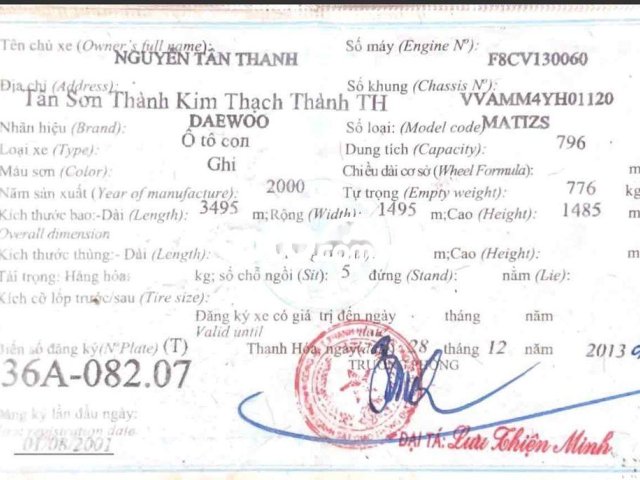 Tên chủ xe (Owner's full name): NGUYỄN TẤN THANH Số máy (Engine Nº): F8CV130060
Địa chỉ (Address): Tân Sơn Thành Kim Thạch Thành TH Số khung (Chassis Nº): VVAMM4YH01120
Nhãn hiệu (Brand): DAEWOO Số loại: (Model code) MATIZS
Loại xe (Type): Ô tô con Dung tích (Capacity): 796
Màu sơn (Color): Ghi Chiều dài cơ sở (Wheel Formula): m
Năm sản xuất (Year of manufacture): 2000 Tự trọng (Empty weight): 776 k
Kích thước bao:-Dài (Length): 3495 m;Rộng (Width): 1495 m;Cao (Height): 1485 m
Overall dimension
Kích thước thùng:- Dài (Length): m;Cao (Height): m
Tải trọng: Hàng hóa: kg; số chỗ ngồi (Sit): 5 đứng (Stand): nằm (Lie):
Kích cỡ lốp trước/sau (Tire size):
Đăng ký xe có giá trị đến ngày tháng năm
Valid until date
Biển số đăng ký(Nº Plate) (T) Thanh Hóa, ngày 28 tháng 12 năm 2013
36A-082.07 TRƯỞNG PHÒNG
Đăng ký lần đầu ngày:
first registration date
01/08/2001 ĐẠI TÁ: Lưu Thiện Minh